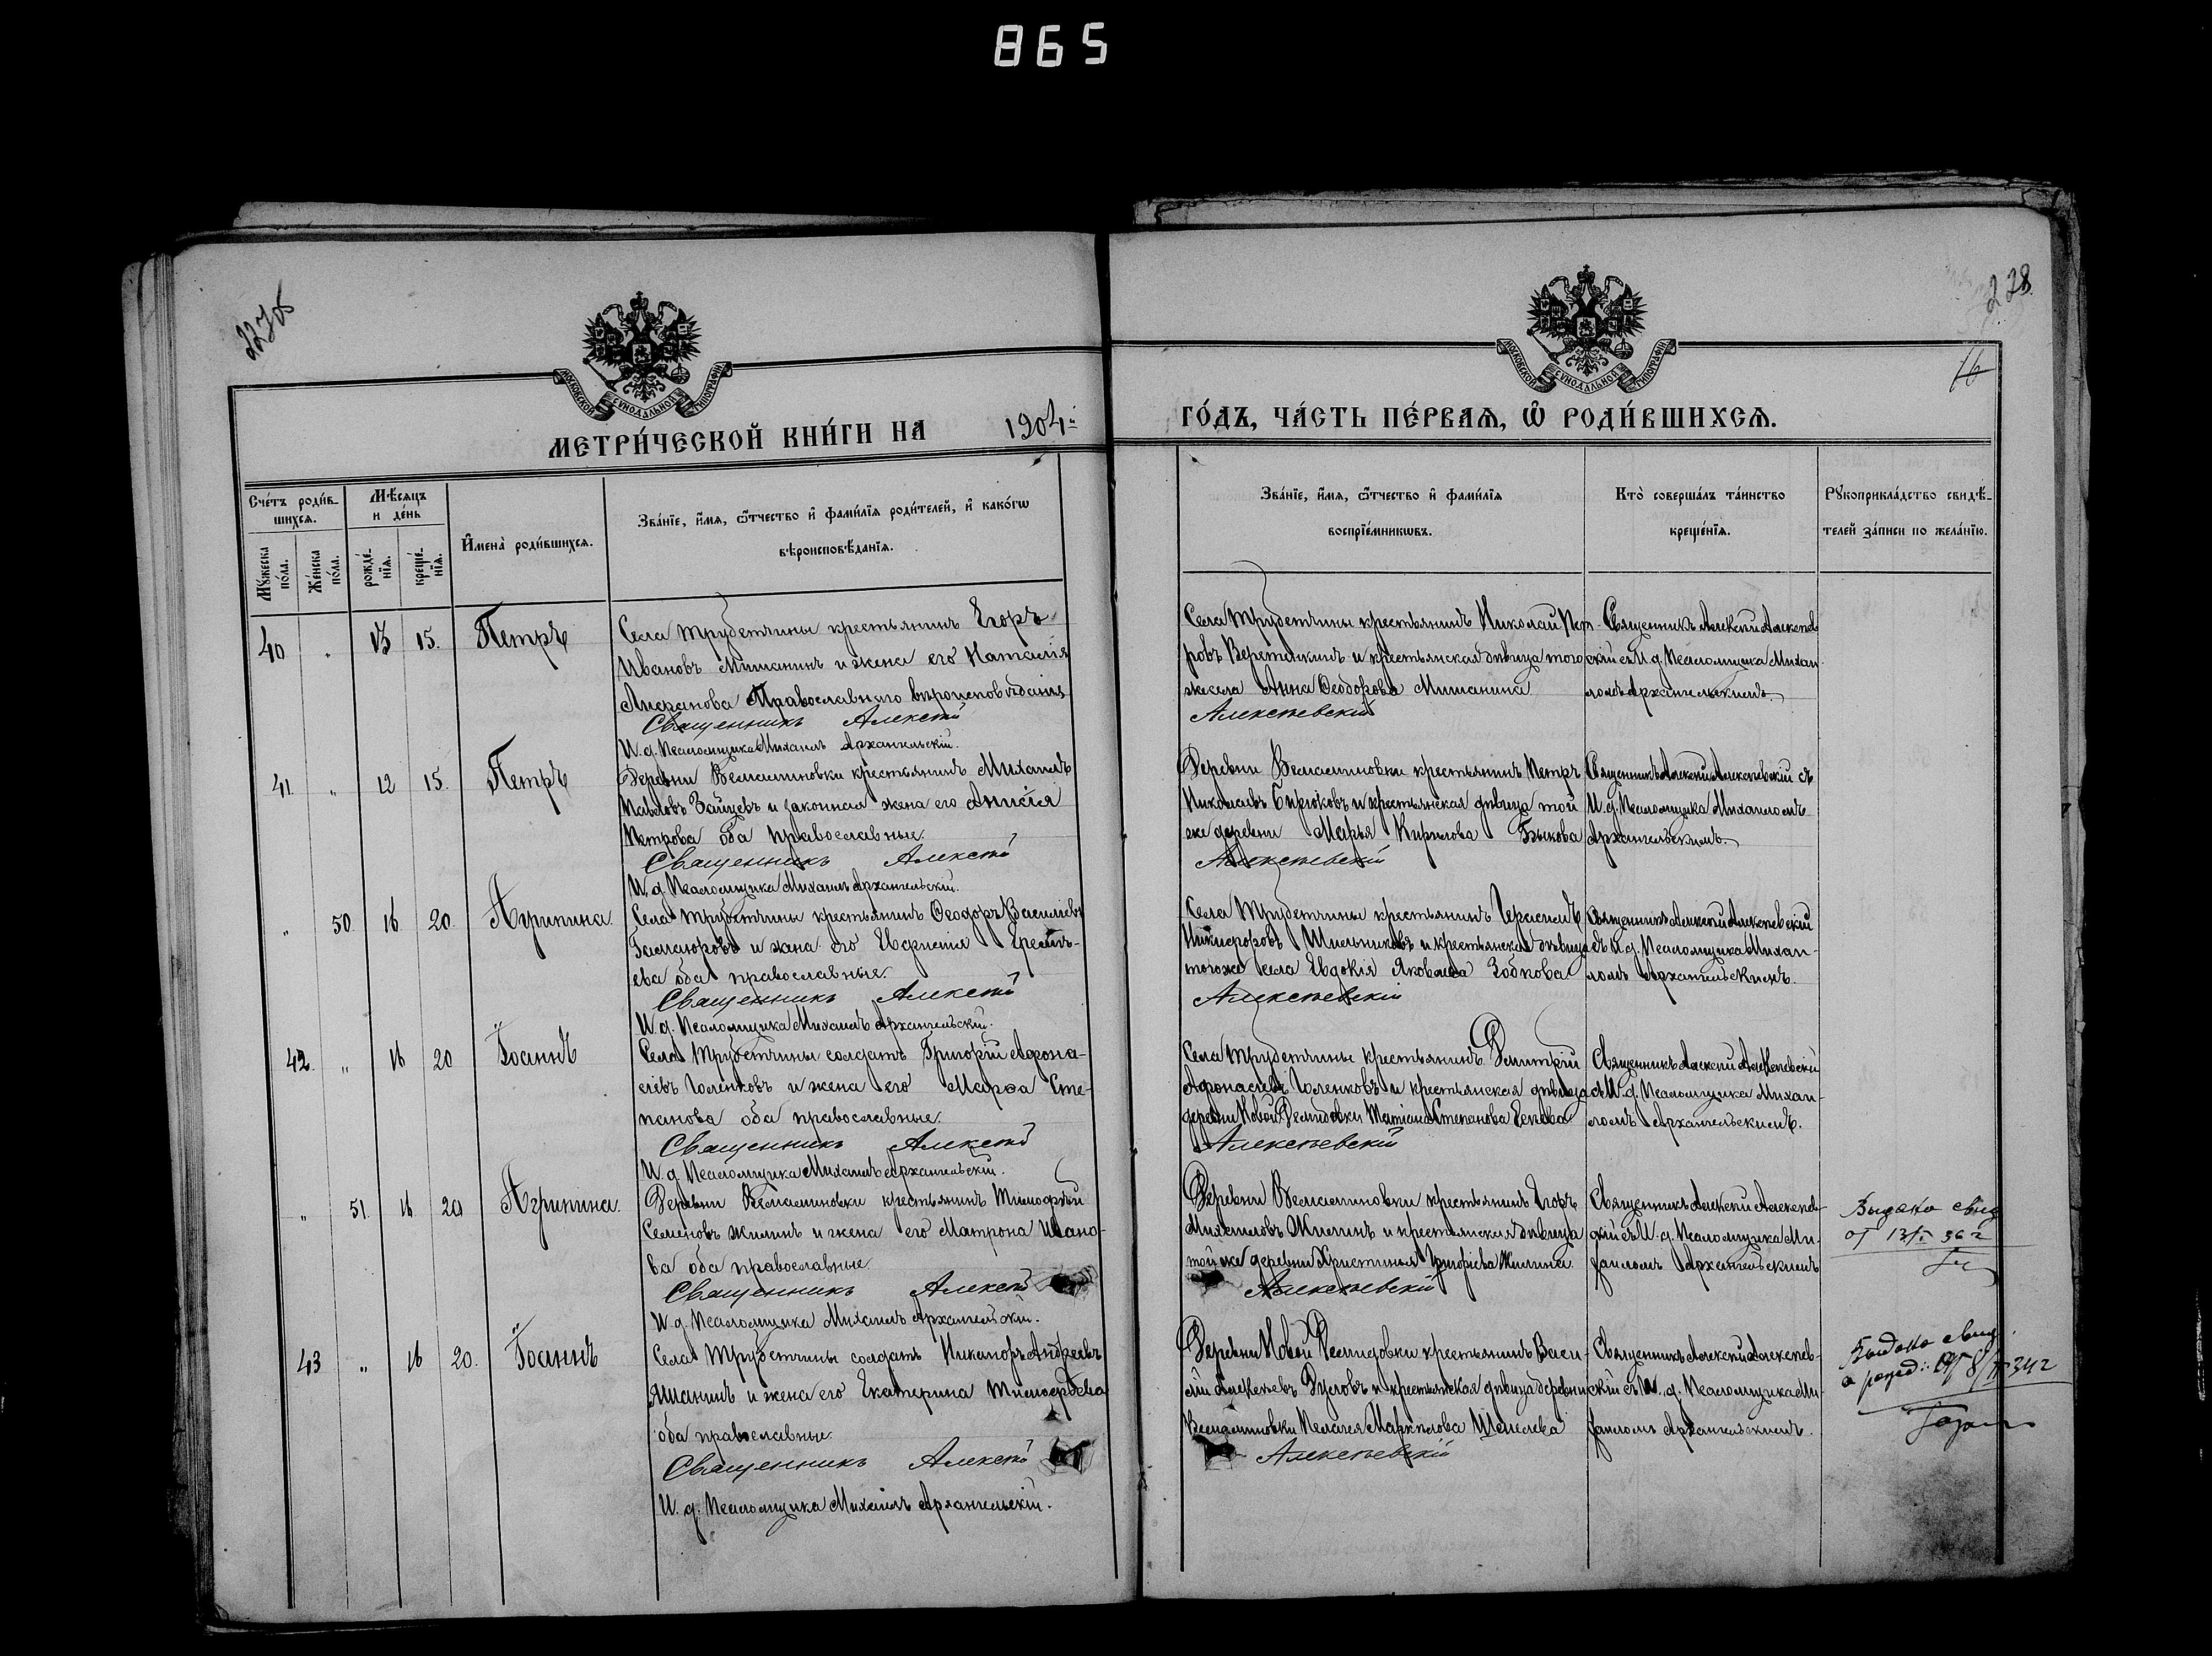 865
227об
228
16
МОСКОВСКОЙ СѴНОДАЛЬНОЙ ТИПОГРАФІИ
МОСКОВСКОЙ СѴНОДАЛЬНОЙ ТИПОГРАФІИ
МЕТРИ́ЧЕСКОЙ КНИ́ГИ НА 1904й ГО́ДЪ, ЧА́СТЬ ПЕ́РВАѦ, Ѡ҆ РОДИ́ВШИХСѦ.
Сче́тъ роди́вшихсѧ.
Мꙋ́жеска по́ла.
Же́нска по́ла.
Мѣ́сѧцъ и де́нь
рожде́нїѧ.
креще́нїѧ.
И҆мена̀ роди́вшихсѧ.
Зва́нїе, и҆́мѧ, ѻ҆́тчество и҆ фами́лїѧ роди́телей, и҆ како́гѡ
вѣроисповѣ́данїѧ.
Зва́нїе, и҆́мѧ, ѻ҆́тчество и҆ фами́лїѧ
воспрїе́мникѡвъ.
Кто̀ соверша́лъ та́инство
креще́нїѧ.
Рꙋкоприкла́дство свидѣ́телей за́писи по жела́нїю.
40 „ 13 15. Петръ
Села Трубетчины крестьянинъ Егоръ
Ивановъ Мишанинъ и жена его Наталія
Православнаго вѣроисповѣданія
Священникъ Алексѣй
И. д. Псаломщика Михаилъ Архангельскій.
Села Трубетчины крестьянинъ Николай Пет-
ровъ Веретенкинъ и крестьянская дѣвица того
же села Анна Ѳеодорова Мишанина
Алексѣевскій
Священникъ Алексѣй Алексѣев-
скій съ И. д. Псаломщика Михаи-
ломъ Архангельскимъ.
41. „ 12 15. Петръ
Деревни Вельяминовки крестьянинъ Михаилъ
Павловъ Зайцевъ и законная жена его Анисія
Петрова оба православные.
Священникъ Алексѣй
И. д. Псаломщика Михаилъ Архангельскій.
Деревни Вельяминовки крестьянинъ Петръ
Николаевъ Бирюковъ и крестьянская дѣвица той
же деревни Марья Кирилова Быкова
Алексѣевскій
Священникъ Алексѣй Алексѣевскій съ
И. д. Псаломщика Михаиломъ
Архангельскимъ.
„ 50. 16 20. Агрипина.
Села Трубетчины крестьянинъ Ѳеодоръ Васильевъ
и жена его Евфимія
ева оба православные.
Священникъ Алексѣй
И. д. Псаломщика Михаилъ Архангельскій.
Села Трубетчины крестьянинъ Герасимъ
Никифоровъ Шильниковъ и крестьянская дѣвица
тогоже села Евдокія Яковлева Зобкова
Алексѣевскій
Священникъ Алексѣй Алексѣевскій
съ И. д. Псаломщика Михаи-
ломъ Архангельскимъ.
42. „ 16 20 Іоаннъ
Села Трубетчины солдатъ Григорій Афона-
сіевъ Голенковъ и жена его Марѳа Сте-
панова оба православные.
Священникъ Алексѣй
И. д. Псаломщика Михаилъ Архангельскій.
Села Трубетчины крестьянинъ Димитрій
Афонасіевъ Голенковъ и крестьянская дѣвица
деревни Новой Демидовки Татіана Степанова
Алексѣевскій
Священникъ Алексѣй Алексѣевскій
съ И. д. Псаломщика Михаи-
ломъ Архангельскимъ.
„ 51. 16 20 Агрипина.
Деревни Вельяминовки крестьянинъ Тимофѣй
Семеновъ Жилинъ и жена его Матрона Ивано-
ва оба православные
Священникъ Алексѣй
И. д. Псаломщика Михаилъ Архангельскій.
Деревни Вельяминовки крестьянинъ Егоръ
Михаиловъ Жилинъ и крестьянская дѣвица
той же деревни Христинья Григорьева Жилина.
Алексѣевскій
Священникъ Алексѣй Алексѣев-
скій съ И. д. Псаломщика Ми-
хаиломъ Архангельскимъ
Выдано свид
от 13/ 36 г
43 „ 16 20. Іоаннъ
Села Трубетчины солдатъ Никаноръ Андреевъ
Яшанинъ и жена его Екатерина Тимофѣева
оба православные.
Священникъ Алексѣй
И. д. Псаломщика Михаилъ Архангельскій.
Деревни Новой Демидовки крестьянинъ Васи-
лій Алексѣевъ Гусловъ и крестьянская дѣвица деревни
Вельяминовки Пелагея Маркелова Шепелева
Алексѣевскій
Священникъ Алексѣй Алексѣев-
скій съ И. д. Псаломщика Ми-
хаиломъ Архангельскимъ.
Выдано свид.
о рожд: от 8/ 34 г